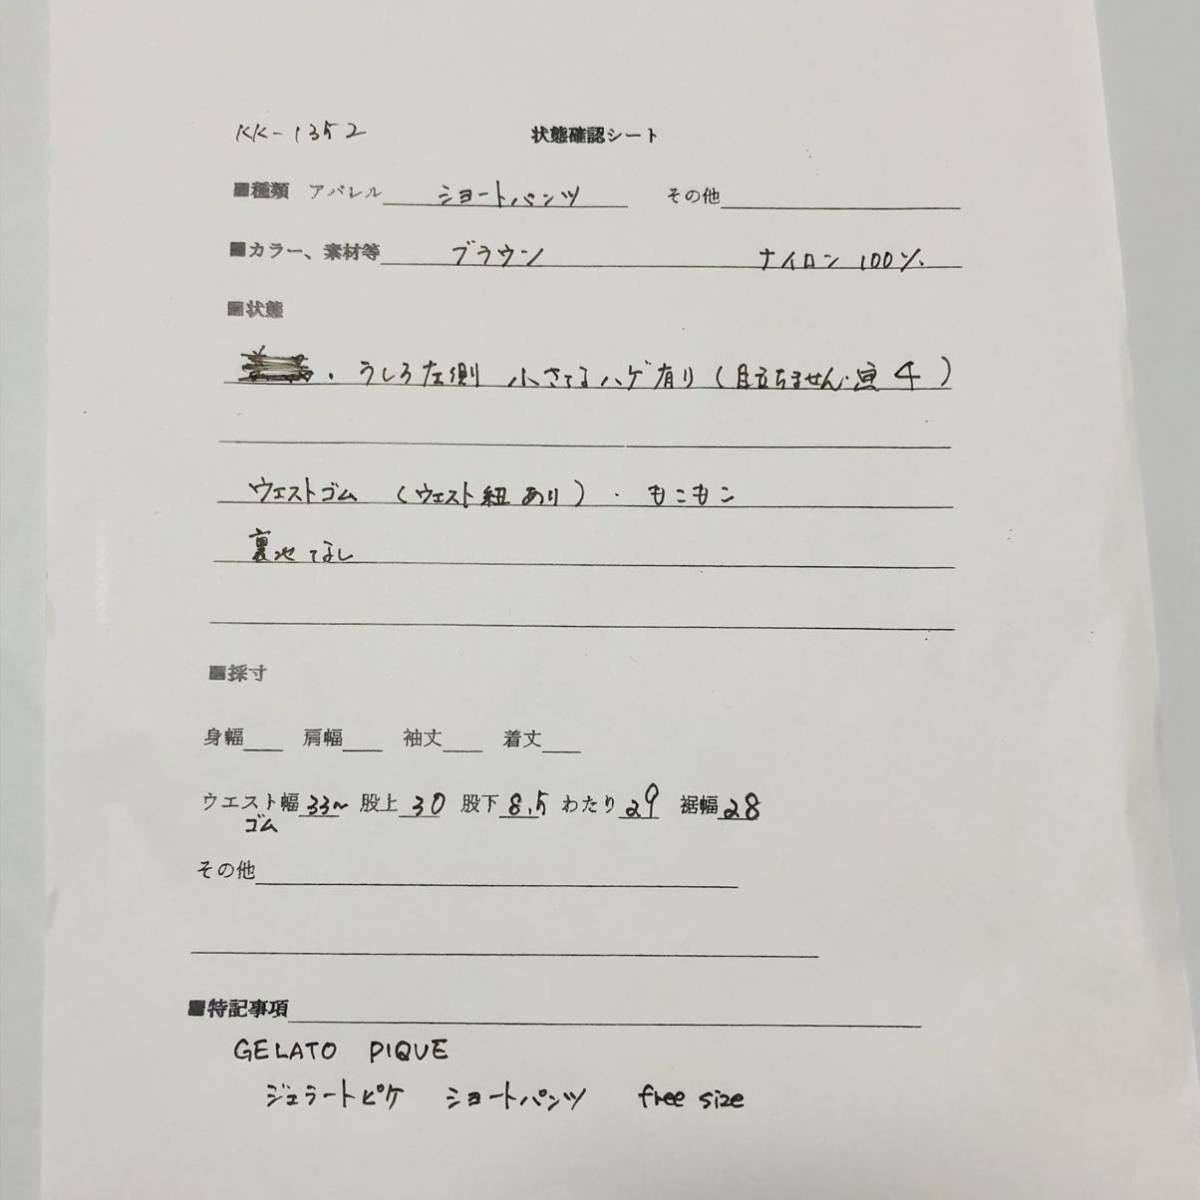 KK-1352 状態確認シート
■種類 アパレル ショートパンツ その他
■カラー、素材等 ブラウン ナイロン 100%.
■状態
・うしろ左側 小さなハゲ有り (目立ちません. 4)
ウエストゴム (ウエスト紐あり)・もこもこ
裏地なし
■採寸
身幅 肩幅 袖丈 着丈
ウエスト幅 33~ 股上 30 股下 8.5 わたり 29 裾幅 28
ゴム
その他
■特記事項
GELATO PIQUE
ジェラートピケ ショートパンツ free size